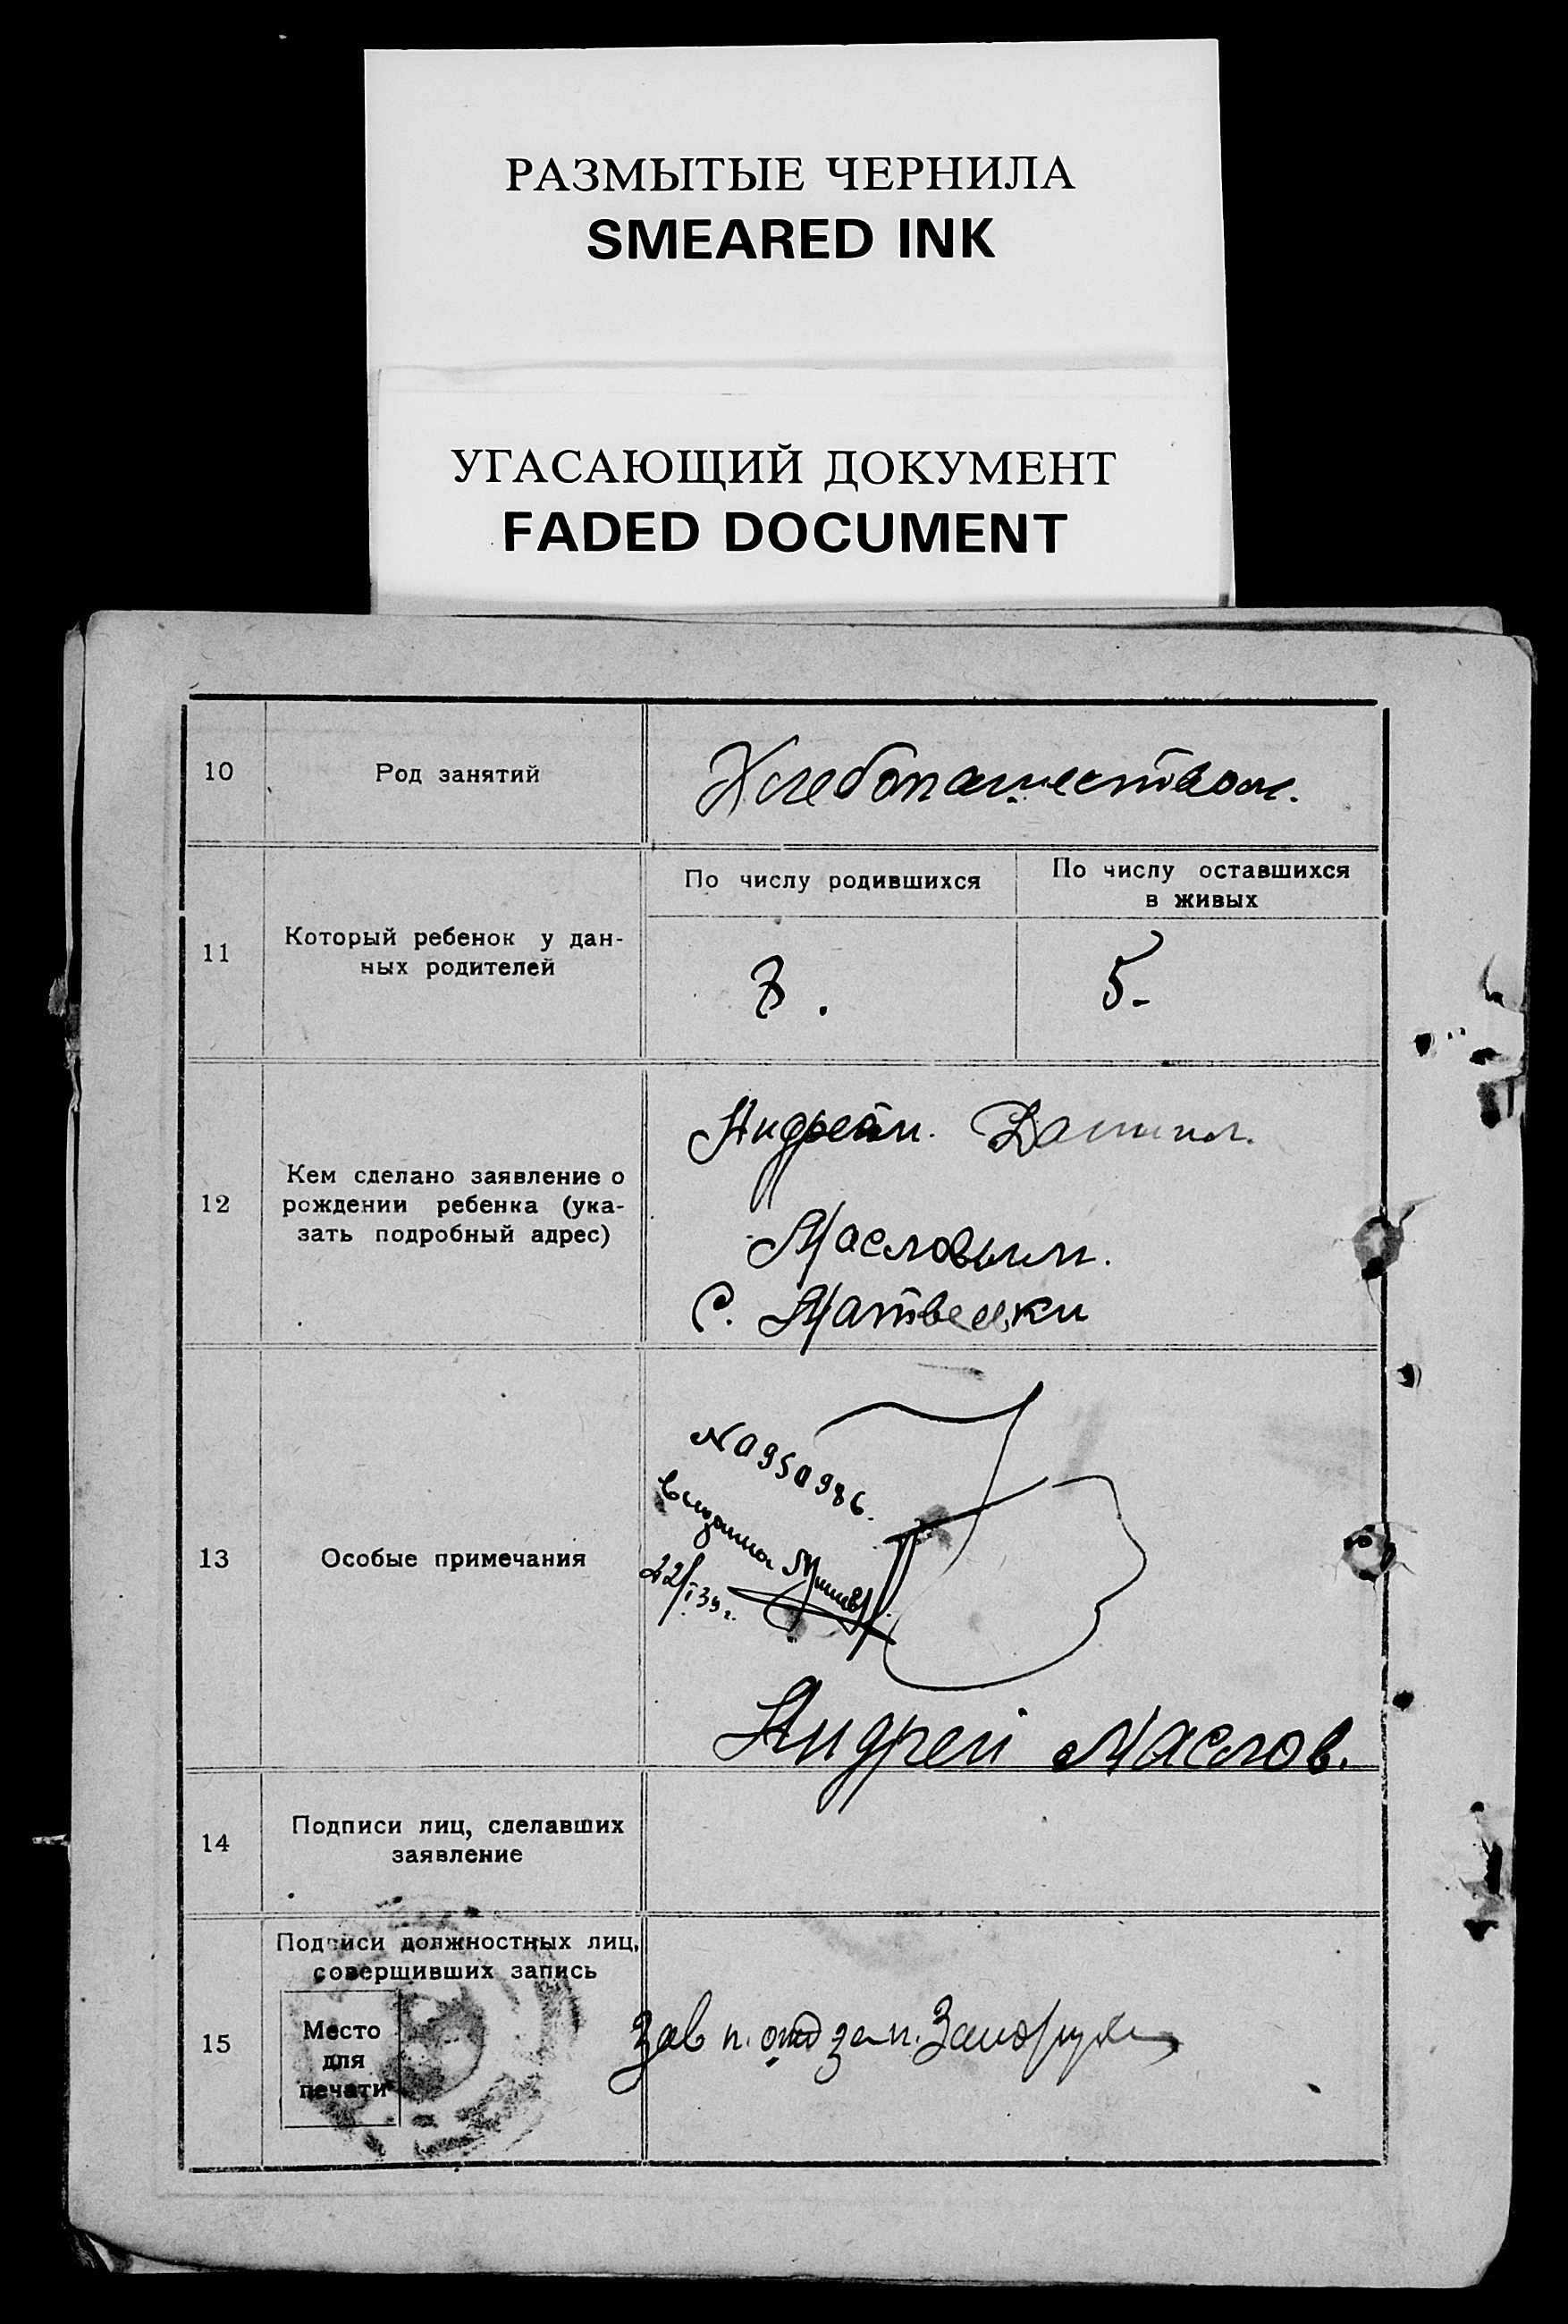 РАЗМЫТЫЕ ЧЕРНИЛА
SMEARED INK
УГАСАЮЩИЙ ДОКУМЕНТ
FADED DOCUMENT
10 Род занятий Хлебопашеством.
11 Который ребенок у дан-
ных родителей
По числу родившихся
По числу оставшихся
в живых
5-
12 Кем сделано заявление о
рождении ребенка (ука-
зать подробный адрес)
Андреем
Масловым.
С. Матвеевки
13 Особые примечания
№ 0950986.
22/I 39 г.
Андрей Маслов.
14 Подписи лиц, сделавших
заявление
15 Подписи должностных лиц,
совершивших запись
Место
для
печати
Зав